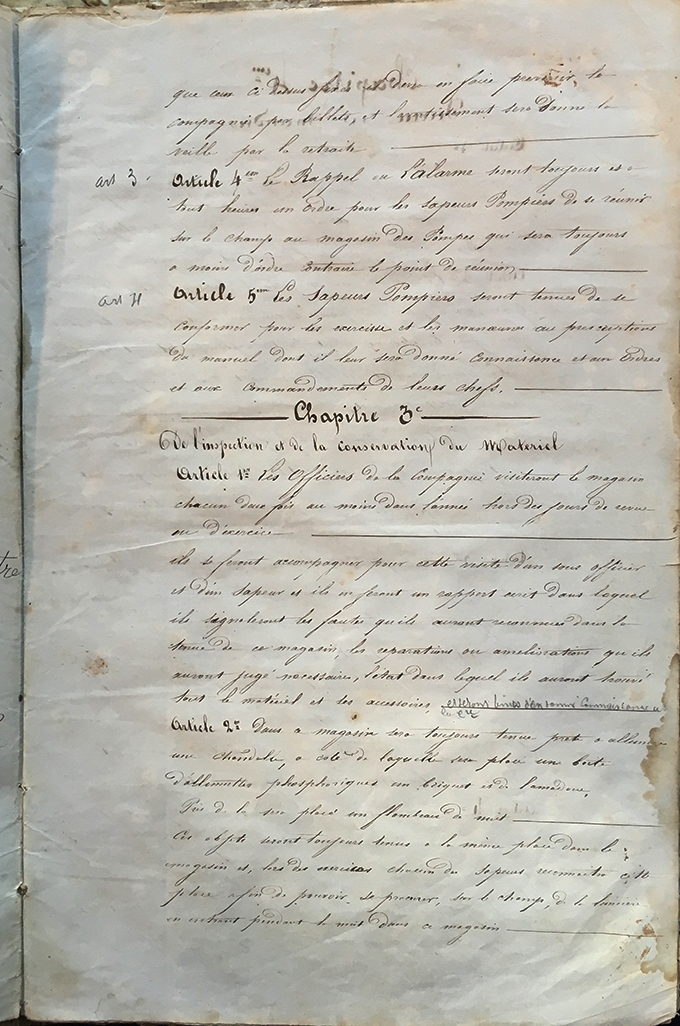 que ceux ci dessus
compagnie par billets, et l'avertissement sera donné la
veille par la retraite
art 3.
Article 4em Le Rappel ou l'alarme seront toujours et a
tout heures un ordre pour les Sapeurs Pompiers de se réunir
sur le champ au magasin des Pompes qui sera toujours
a moins d'ordre Contraire le point de réunion,
art 4
Article 5em Les Sapeurs Pompiers seront tenues de se
conformer pour les exercisse et les manœuvre au prescriptions
du manuel dont il leur sera donné Connaissance et aux Ordres
et aux Commandements de leurs chefs.
Chapitre 3e
De l'inspection et de la conservation du Materiel
Article 1er Les Officiers de la Compagnie visiteront le magasin
chacun deux fois au moins dans l'année hors des jours de revue
ou d'exercice
ils se feront accompagner pour cette visite d'un sous officier
et d'un Sapeur et ils en feront un rapport ecrit dans lequel
ils signaleront les fautes qu'ils auront reconnues dans la
tenue de ce magasin, les reparations ou ameliorations qu'ils
auront jugé necessaires, l'état dans lequel ils auront trouvé
tout le matériel et les accessoires, et seront tenus d'en donner Connaissance a
Article 2em Dans a magasin sera toujours tenue pret a allumer
une chandelle, a coté de laquelle sera place un boite
d'allumettes phosphoriques un briquet et de l'amadou,
Près de la sera placé un flambeau de nuit
Ces objets seront toujours tenus a la même place dans le
magasin et, lors des exercices chacun des Sapeurs reconnaitra cette
place afin de pouvoir se procurer, sur le champ, de la lumiere
en entrant pendant la nuit dans ce magasin
tre